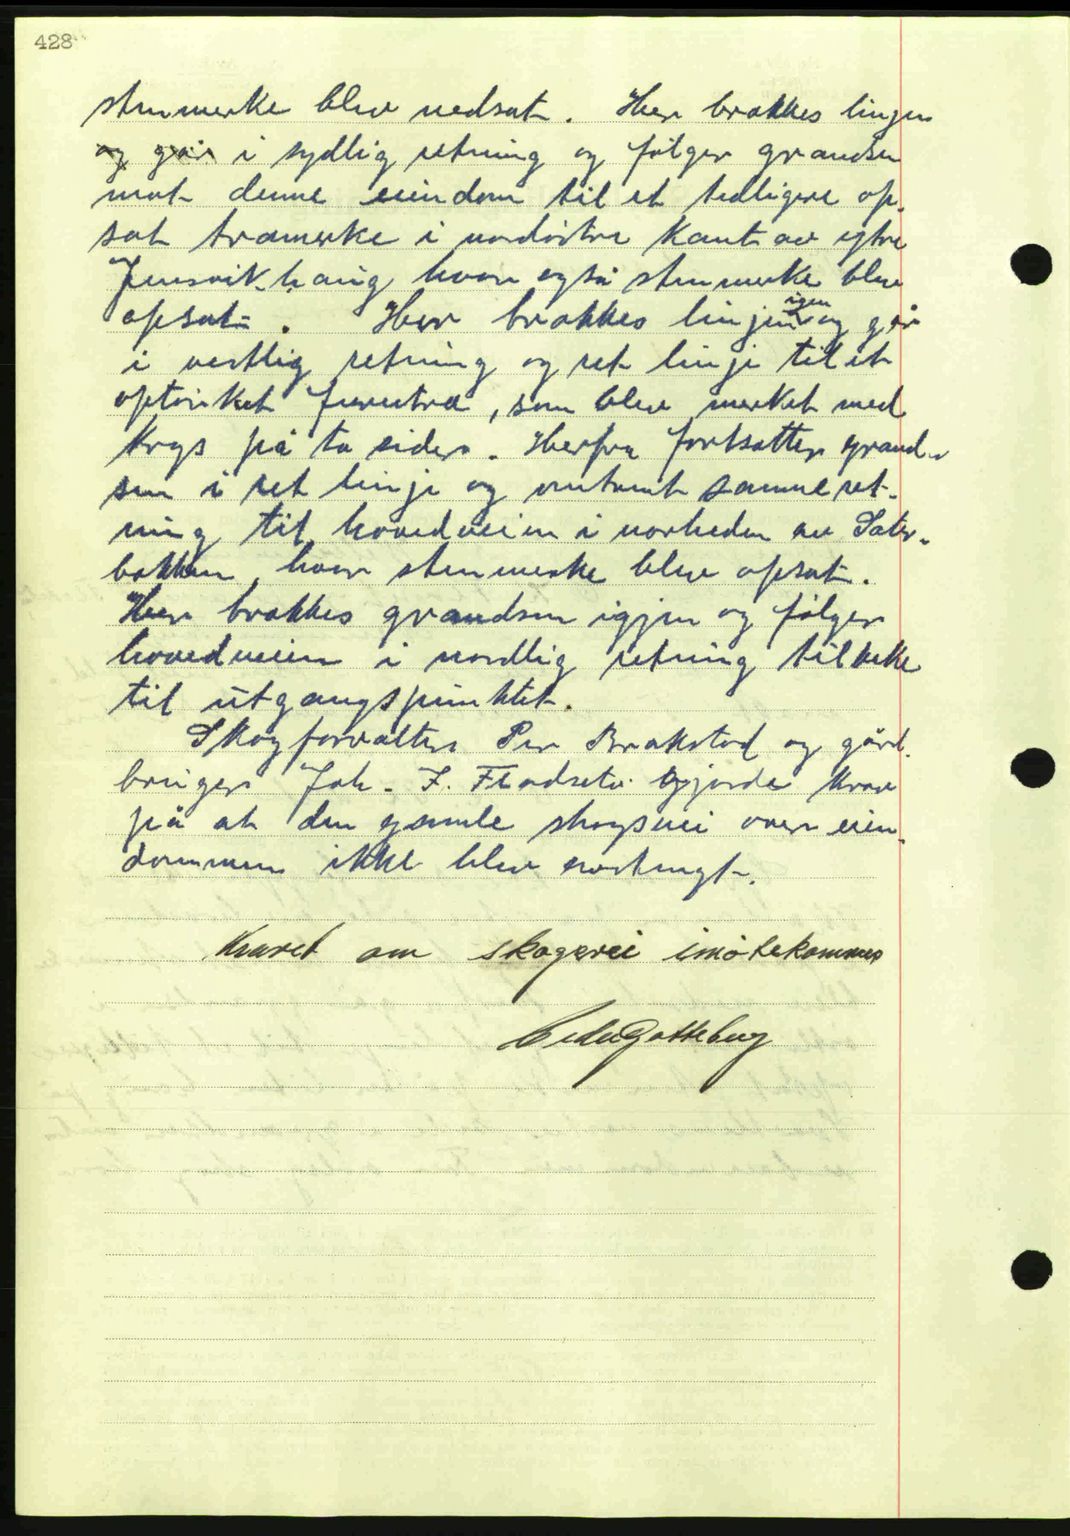 428
stenmerke blev nedsat. Her brækkes linjen
og går i sydlig retning og følger grændsen
mot denne eiendom til et tedligere op-
sat træmerke i nordöstre kant av ytre
Jensvik haug hvor også stenmerke blev
opsat. Her brækkes linjen igen og går
i vestlig retning og ret linje til et
optörket furutræ, som blev merket med
krys på to sider. Herfra fortsætter grænd-
sen i ret linje og omtrent samme ret-
ning til hovedveien i nærheden av Sæter-
bakken hvor stenmerke blev opsat.
Her brækkes grændsen igjen og følger
hovedveien i nordlig retning tilbake
til utgangspunktet.
Skogforvalter Per Brakstad og gård-
bruger Joh. J. Fladseth gjorde krav
på at den gamle skogsvei over eien-
dommen ikke blev avstengt.
Kravet om skogsvei imøtekommes
Peder Gotteberg